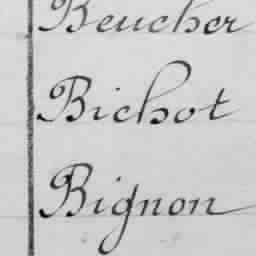 Beucher
Bichot
Bignon